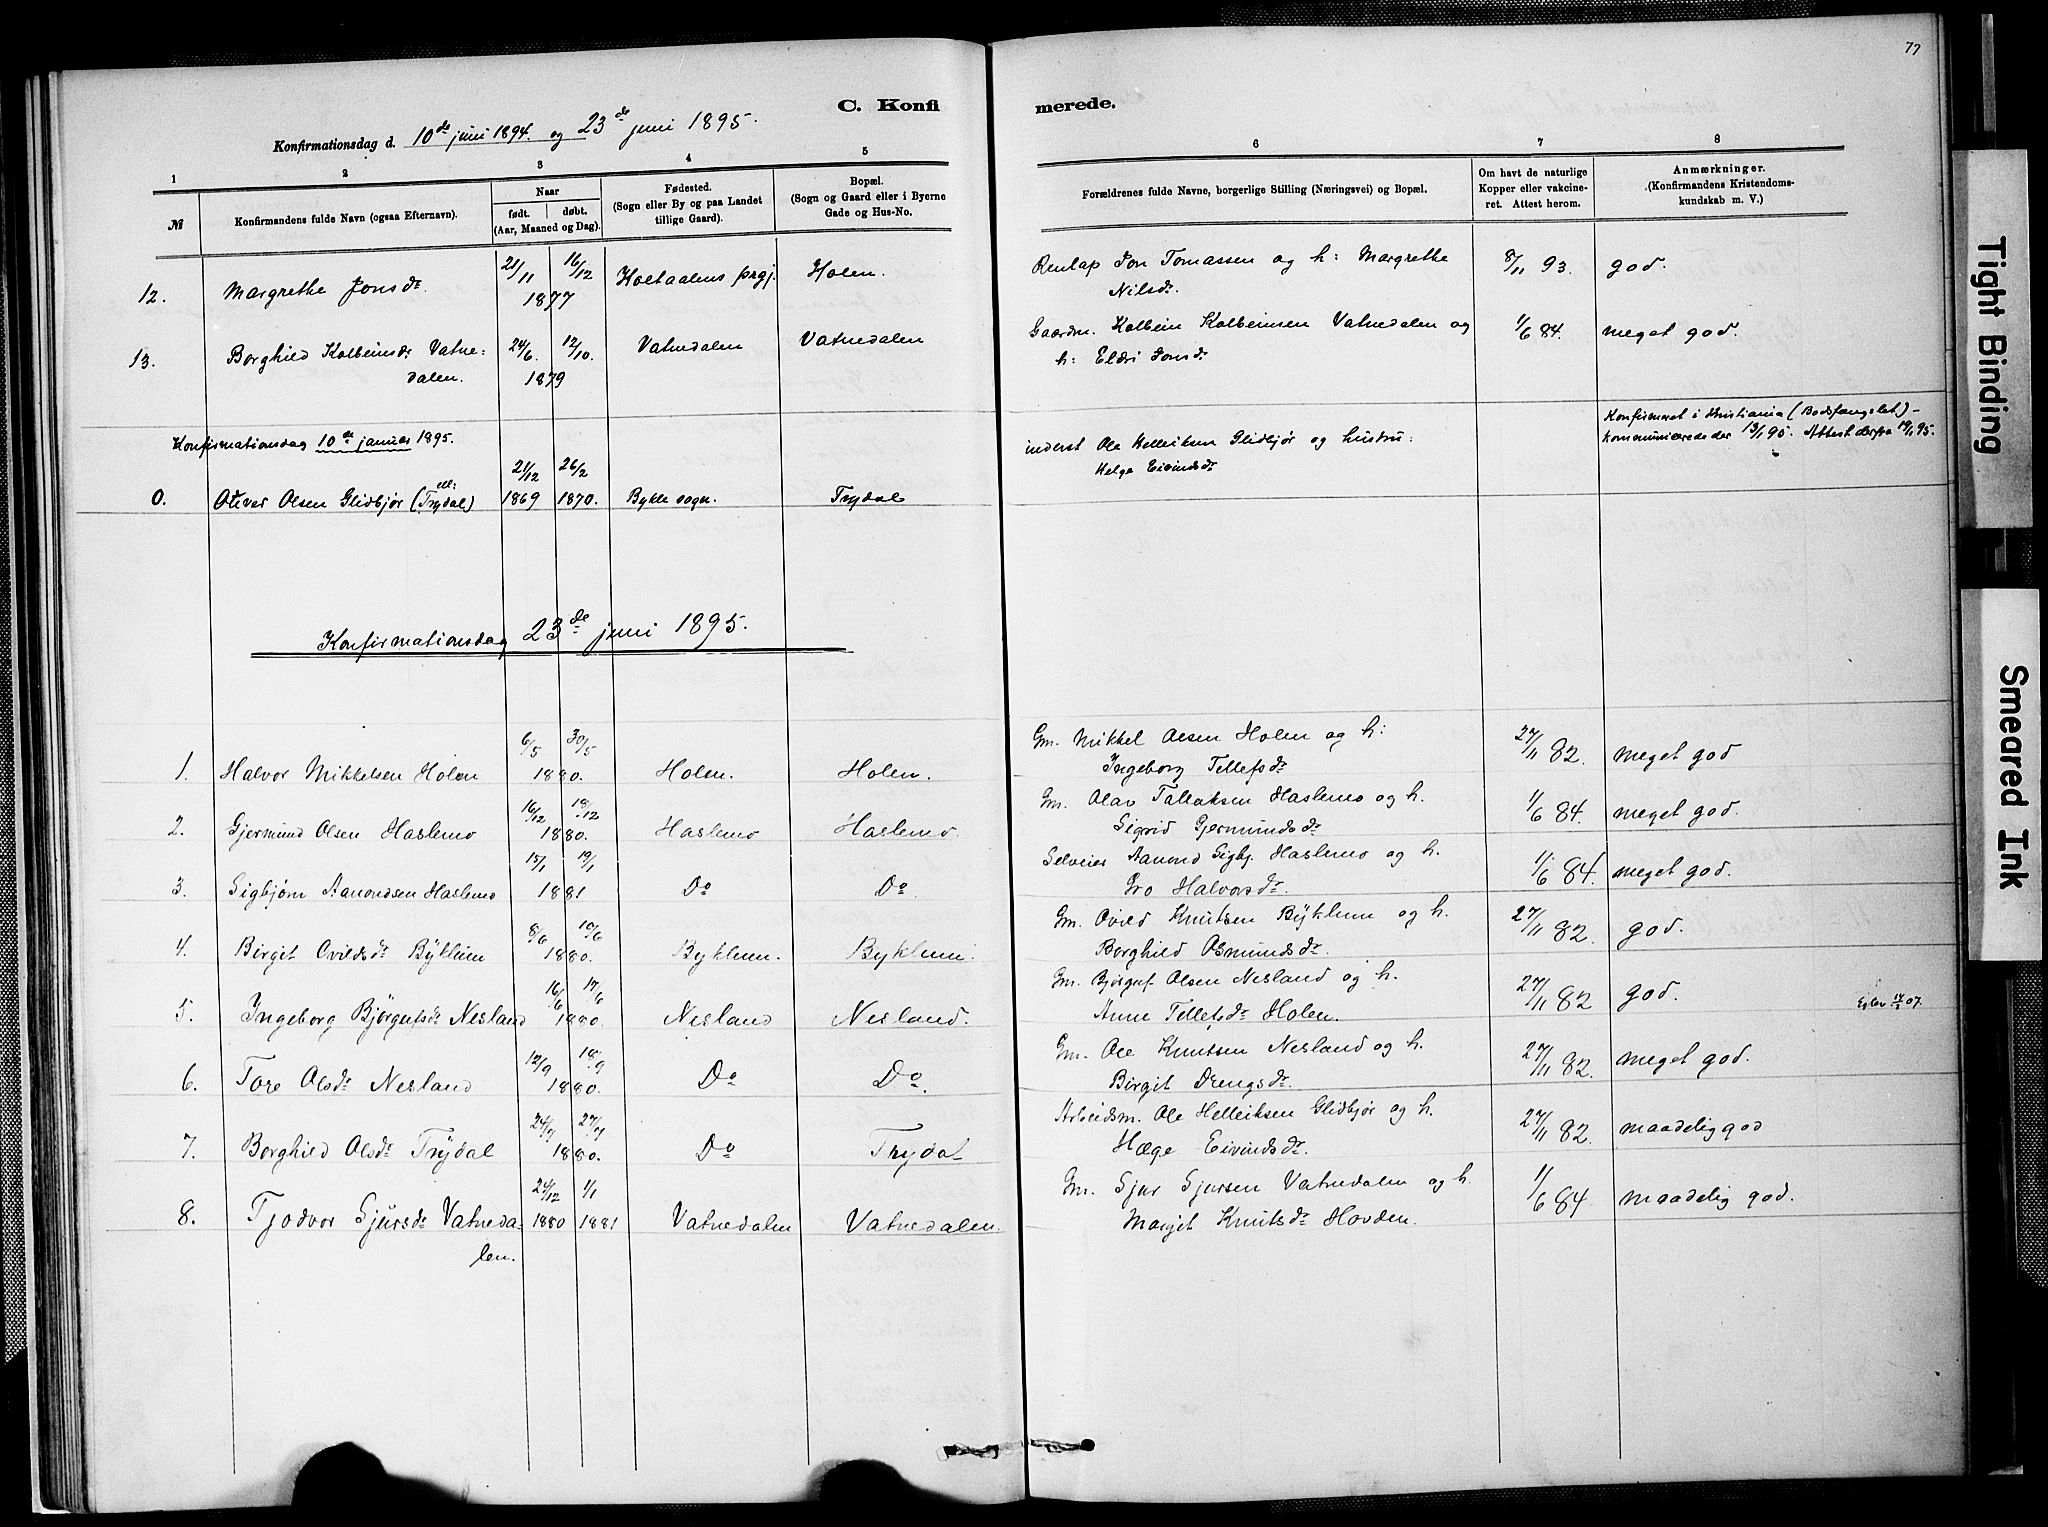 77
C. Konfi merede.
Konfirmationsdag d. 10de juni 1894. og 23de juni 1895.
1 2 3 4 5 6 7 8
№ Konfirmandens fulde Navn (ogsaa Efternavn). Naar født. døbt. (Aar, Maaned og Dag). Fødested. (Sogn eller By og paa Landet tillige Gaard). Bopæl. (Sogn og Gaard eller i Byerne Gade og Hus-No. Forældrenes fulde Navne, borgerlige Stilling (Næringsvei) og Bopæl. Om havt de naturlige Kopper eller vakcineret. Attest herom. Anmærkninger. (Konfirmandens Kristendomskundskab m. V.)
12. Margrethe Jonsdr. 21/11 16/12 1877 Holtaalens prgj. Holen. Renlap Jon Tomassen og h: Margrethe 8/11 93. god.
Nilsdr.
13. Borghild Kolbeinsdr Vatne= 24/6. 12/10. Vatnedalen Vatnedalen Gaardm. Kolbein Kolbeinsen Vatnedalen og 1/6 84. meget god.
dalen. 1879 h: Eldri Jonsdr
Konfirmationsdag 10de januar 1895.
Konfirmeret i Kristiania (Bodsfængslet) -
kommunicerede der 13/1 95. Attest derfra 19/1 95.
inderst Ole Helleiksen Glidbjør og hustru:
Helge Eivindsdr
0. Oliver Olsen Glidbjør (ell: Trydal) 21/12 1869 26/2 1870. Bykle sogn. Trydal
Konfirmationsdag 23de juni 1895.
1. Halvor Mikkelsen Holen 6/5 30/5 1880. Holen. Holen. Gm. Mikkel Olsen Holen og h: 27/11 82. meget god
Ingeborg Tellefsdr
2. Gjermund Olsen Haslemo 16/12 18/12 1880. Haslemo Haslemo. Gm. Olav Tallaksen Haslemo og h. 1/6 84. meget god.
Sigrid Gjermundsdr
3. Sigbjørn Aanondsen Haslemo 15/1 19/1 1881 Do Do. Selveier Aanond Sigbj. Haslemo og h. 1/6 84. meget god.
Gro Halvorsdr.
4. Birgit Ovildsdr Byklum 8/6 10/6 1880. Byklum. Byklum. Gm. Ovild Knutsen Byklum og h. 27/11 82. god.
Borghild Osmundsdr
5. Ingeborg Bjørgufsdr Nesland 16/6 17/6 1880. Nesland Nesland. Gm. Bjørguf Olsen Nesland og h. 27/11 82 god.
Anne Tellefsdr Holen.
6. Tore Olsdr Nesland 12/9 18/9 1880. Do Do. Gm. Ole Knutsen Nesland og h. 27/11 82. meget god.
Birgit Drengsdr.
7. Borghild Olsdr Trydal 24/7 27/7 1880. Do Trydal Arbeidsm. Ole Helleiksen Glidbjør og h. 27/11 82. maadelig god
Hæge Eivindsdr.
8. Tjodvor Sjursdr Vatneda= 24/12 1880 1/1 1881 Vatnedalen Vatnedalen. Gm. Sjur Sjursen Vatnedalen og h. 1/6 84. maadelig god.
len. Margit Knutsdr Hovden.
Tight Binding
Smeared Ink